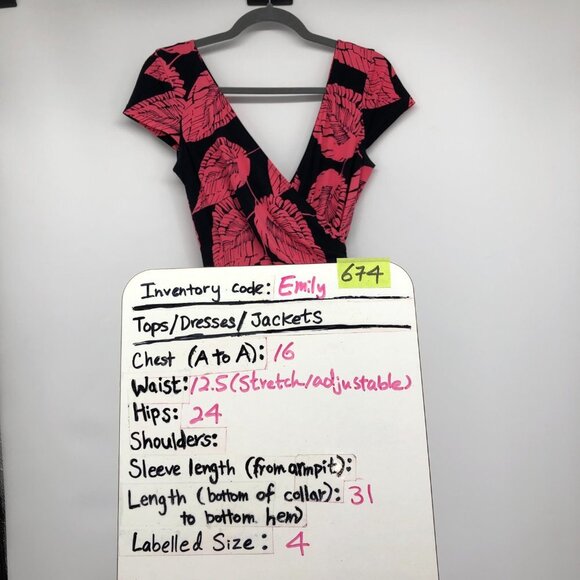 Inventory code: Emily 674
Tops/Dresses/Jackets
Chest (A to A): 16
Waist: 12.5 (Stretch/adjustable)
Hips: 24
Shoulders:
Sleeve length (from armpit):
Length (bottom of collar): 31
to bottom hem)
Labelled Size: 4